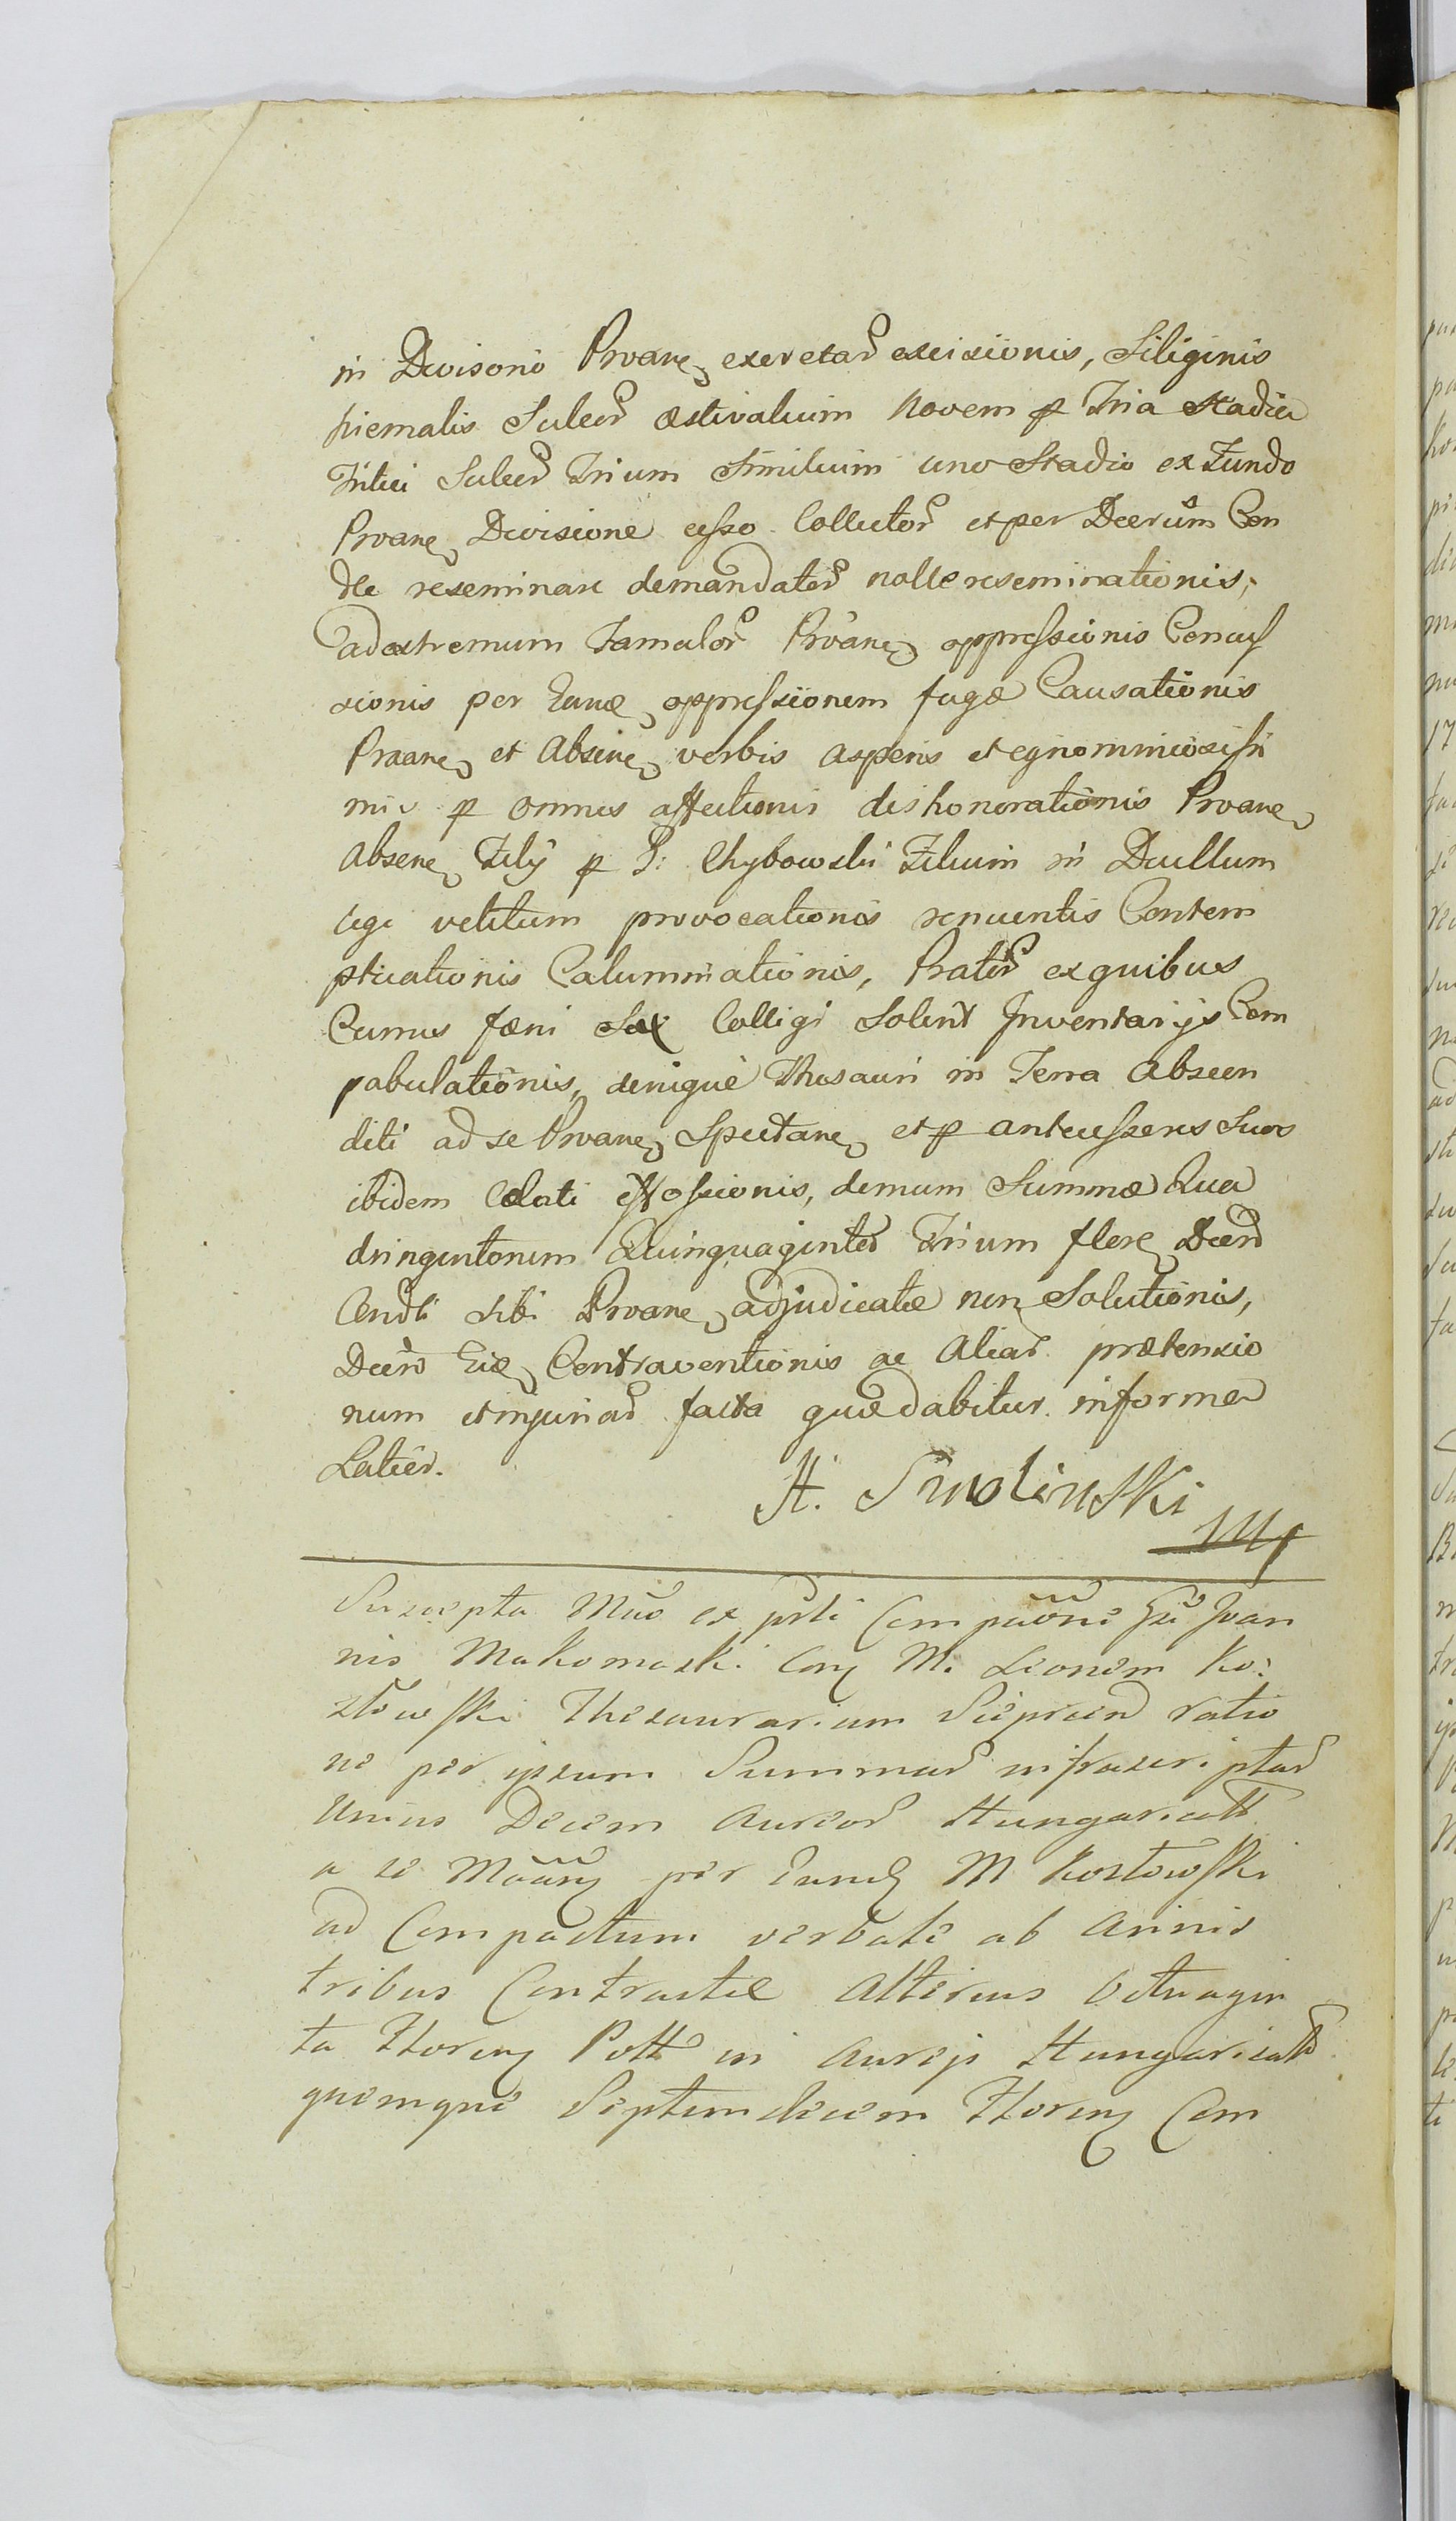 in Divisorio Prvane, exeretar excisionis, Siliginis
hiemalis Sulcor æstivalium Novem p Tria Stadia
Tritici Sulcor Trium Similium uno Stadio ex Fundo
Prvane, Divisione cesso Collector et per Decrum Con
dle reseminare demandator nolle reseminationis,
ad extremum Famulor Prvane, oppressionis Concus
sionis per Eune, oppressionem fugæ Causationis
Prvane, et Absene, verbis asperis et egnominiosissi
mis p omnes affectionis dishonorationis Prvane,
Absene, Filij p P: Chybowski Filium in Duellum
lege vetitum provocationis renuentis Contem
pticationis Calumniationis, Prator ex quibus
Currus fæni Sex Colligi Solent Inventarijs Com
pabulationis, denique Thesauri in Terra Abscon
diti ad se Prvane, Spectane, et p antecessores Suos
ibidem Celati effossionis, demum Summæ Qua
dringentorum Quinquaginta Trium flore, Decro
Condli sibi Prvane, adjudicatæ non Solutionis,
Decro Eide, Contraventionis ac Aliar prætensio
num et injuriar facta quæ dabitur informa
Latier.
St. Smolinski
mp
Suscepta Mão ex prti Compaõne Gsi Joan
nis Makomaski Con, M. Leonem Ko:
złowski Thesaurarium Sieprcen ratio
ne per ipsum Summar infrascriptar
Unius Decem Aureor Hungaricall
a se Mããn, per Eund, M Kozłowski
ad Compactum verbale ab Annis
tribus Contractæ Alterius Octuagin
ta Floren, Poll in Aureis Hungaricall
quemque Septemdecem Floren, Com